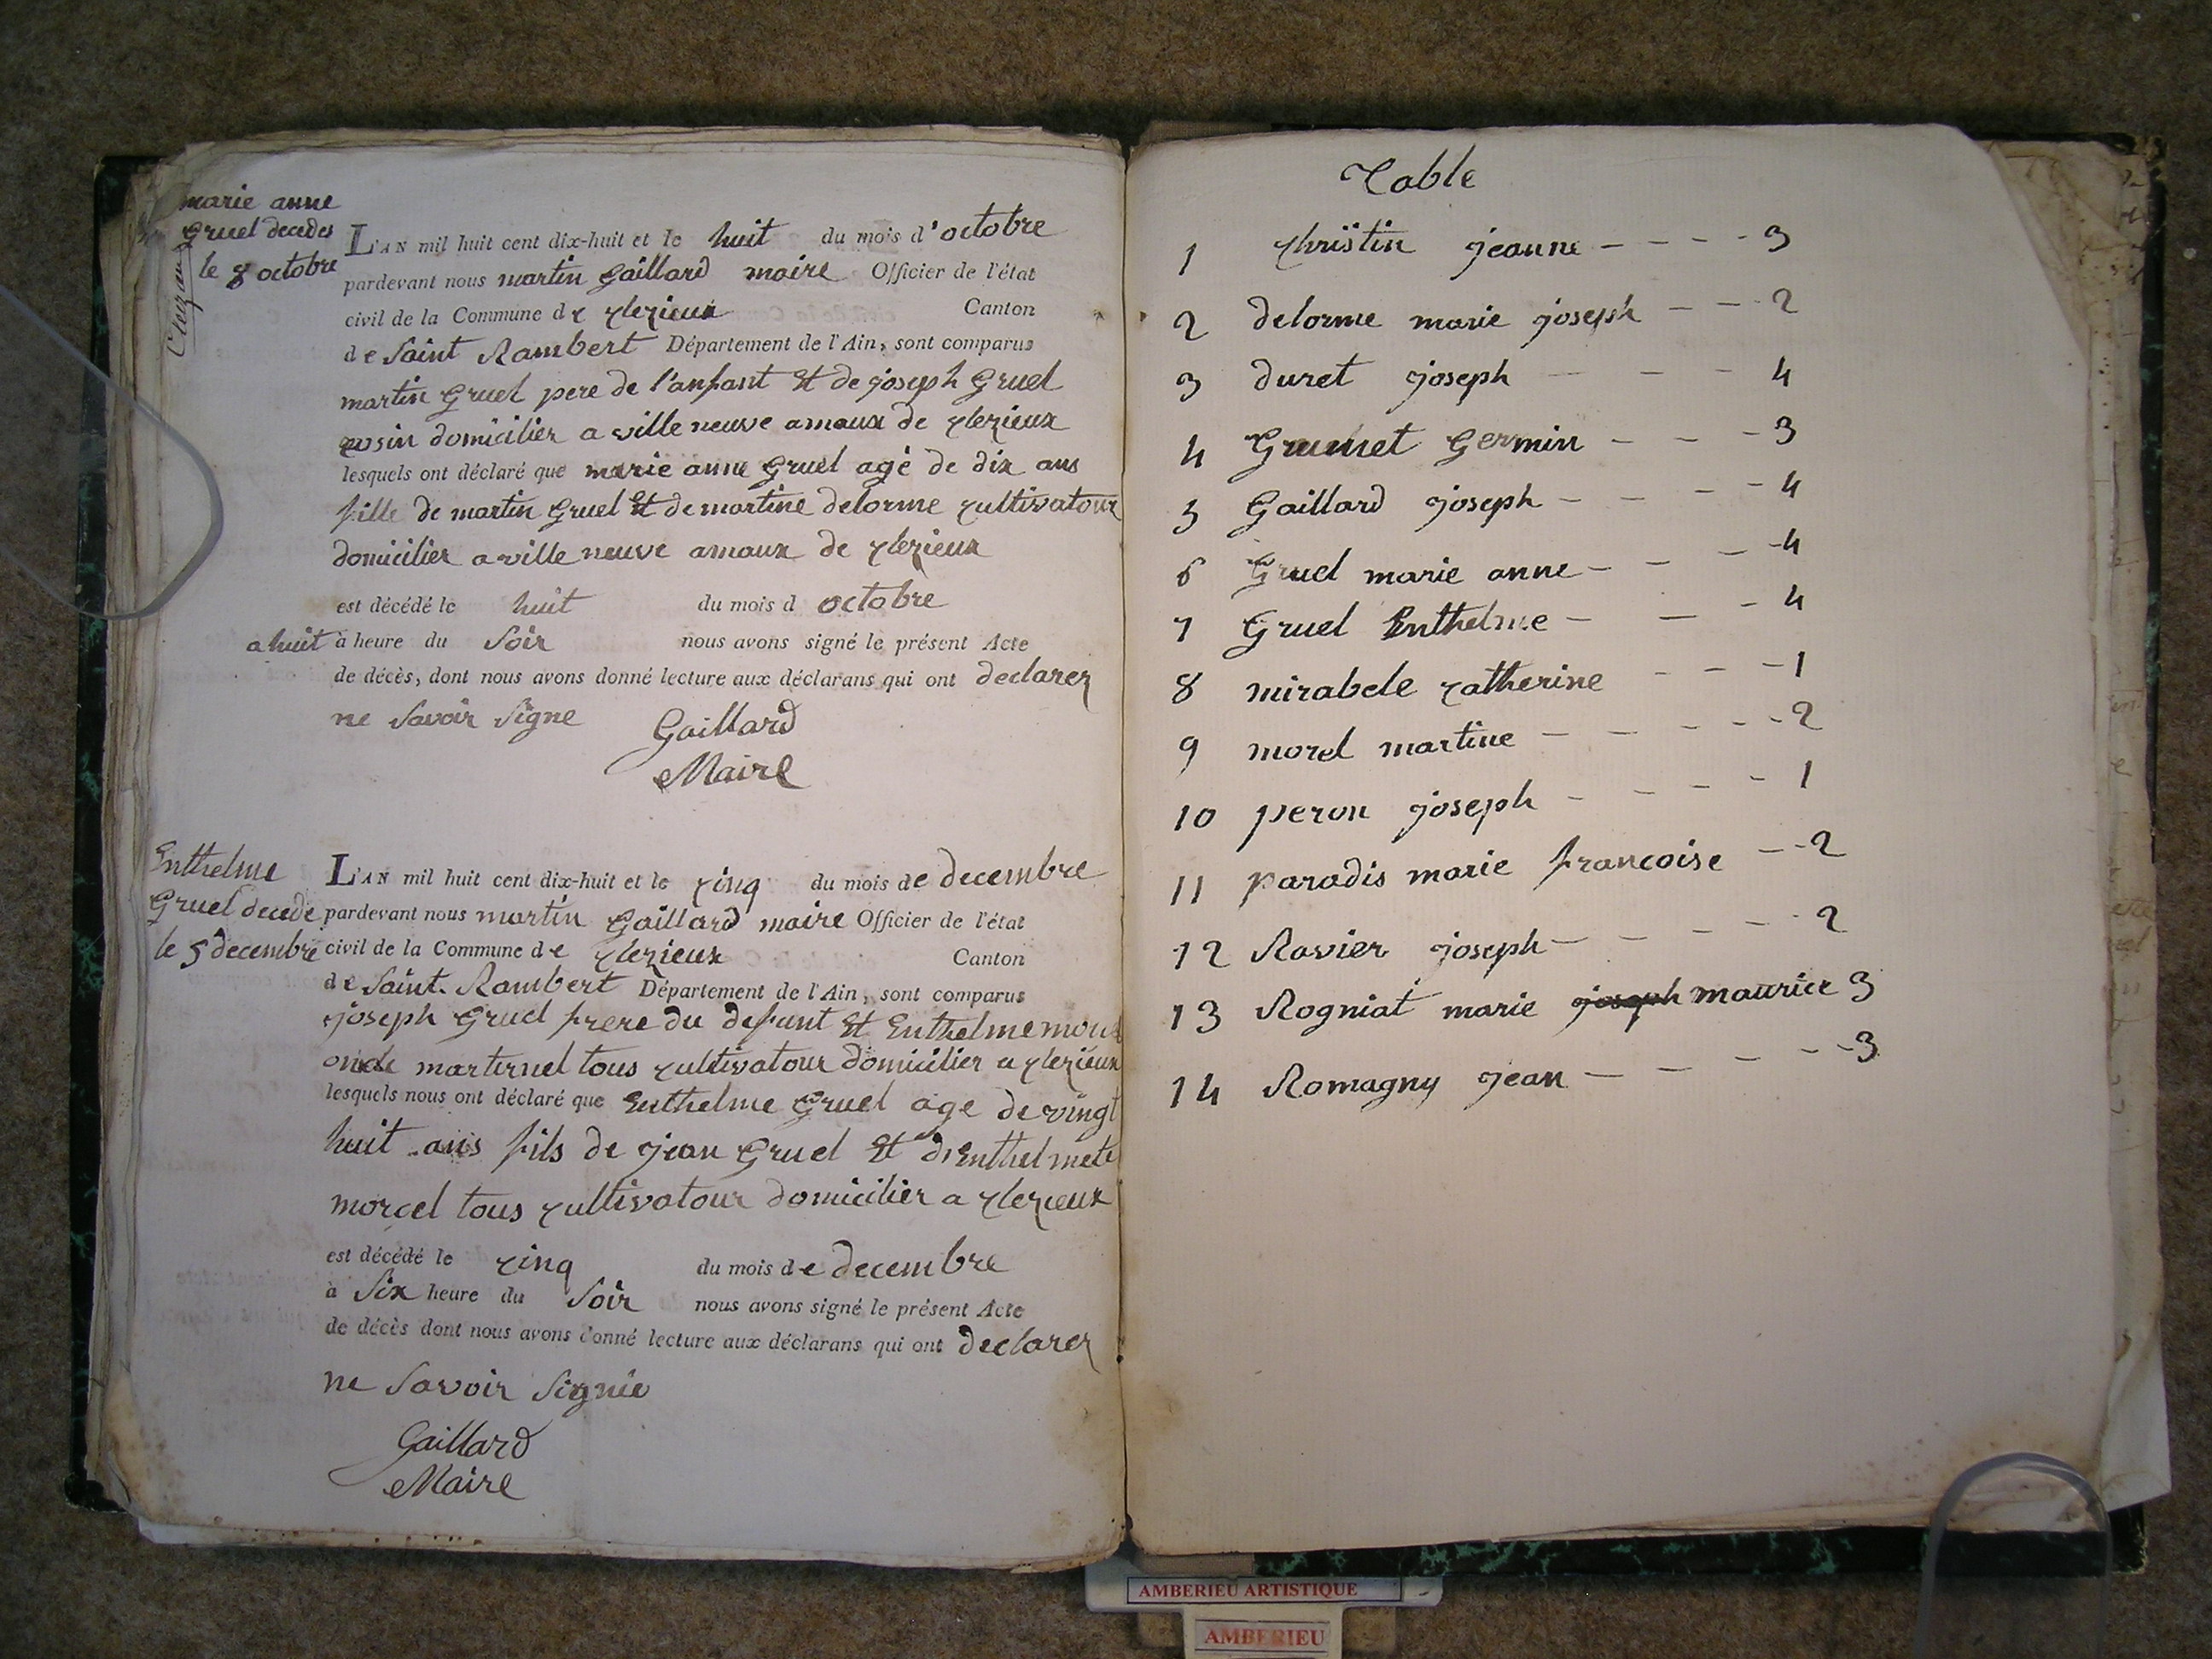 marie anne
Gruel decedes
le 8 octobre
L'AN mil huit cent dix-huit et le huit du mois d'octobre
pardevant nous martin Gaillard maire Officier de l'état
civil de la Commune de clezieux Canton
de Saint Rambert Département de l'Ain, sont comparus
martin Gruel pere de l'anfant Et de joseph Gruel
cosin domicilier a ville neuve amaux de clezieux
lesquels ont déclaré que marie anne Gruel agé de dix ans
fille de martin Gruel Et de martine delorme cultivatour
domicilier a ville neuve amaux de clezieux
est décédé le huit du mois d octobre
a huit à heure du Soir nous avons signé le présent Acte
de décès, dont nous avons donné lecture aux déclarans qui ont declarez
ne Savoir Signe
Gaillard
Maire
Enthelme
Gruel decede
le 5 decembre
L'AN mil huit cent dix-huit et le cinq du mois de decembre
pardevant nous martin Gaillard maire Officier de l'état
civil de la Commune de clezieux Canton
de Saint Rambert Département de l'Ain, sont comparus
joseph Gruel frere du defunt Et Enthelme
oncle marternel tous cultivatour domicilier a clezieux
lesquels nous ont déclaré que Enthelme Gruel age de vingt
huit ans fils de jean Gruel Et d'Enthelmete
morcel tous cultivatour domicilier a clezieux
est décédé le cinq du mois de decembre
à Six heure du Soir nous avons signé le présent Acte
de décès dont nous avons donné lecture aux déclarans qui ont declarez
ne Savoir Signie
Gaillard
Maire
Table
1 christin jeanne - - - - 3
2 delorme marie joseph - - - 2
3 duret joseph - - - 4
4 Grumet Germin - - - 3
5 Gaillard joseph - - - - 4
6 Gruel marie anne - - - - 4
7 Gruel Enthelme - - - 4
8 mirabele catherine - - - 1
9 morel martine - - - - - 2
10 peron joseph - - - - 1
11 paradis marie francoise - - 2
12 Ravier joseph - - - - - 2
13 Rogniat marie joseph maurice 3
14 Romagny jean - - - - - 3
AMBERIEU ARTISTIQUE
AMBERIEU